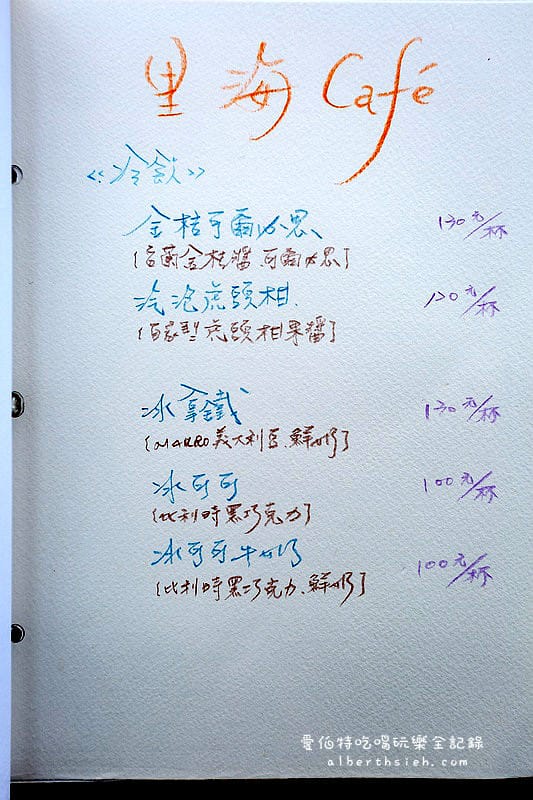 里海 Café
<<冷飲>>
金桔可爾必思 130元/杯
(宜蘭金桔醬、可爾必思)
汽泡虎頭柑 120元/杯
(百家型虎頭柑果醬)
冰拿鐵 130元/杯
(MARRO義大利豆、鮮奶)
冰可可 100元/杯
(比利時黑巧克力)
冰可可牛奶 100元/杯
(比利時黑巧克力、鮮奶)
愛伯特吃喝玩樂全記錄
alberthsieh.com